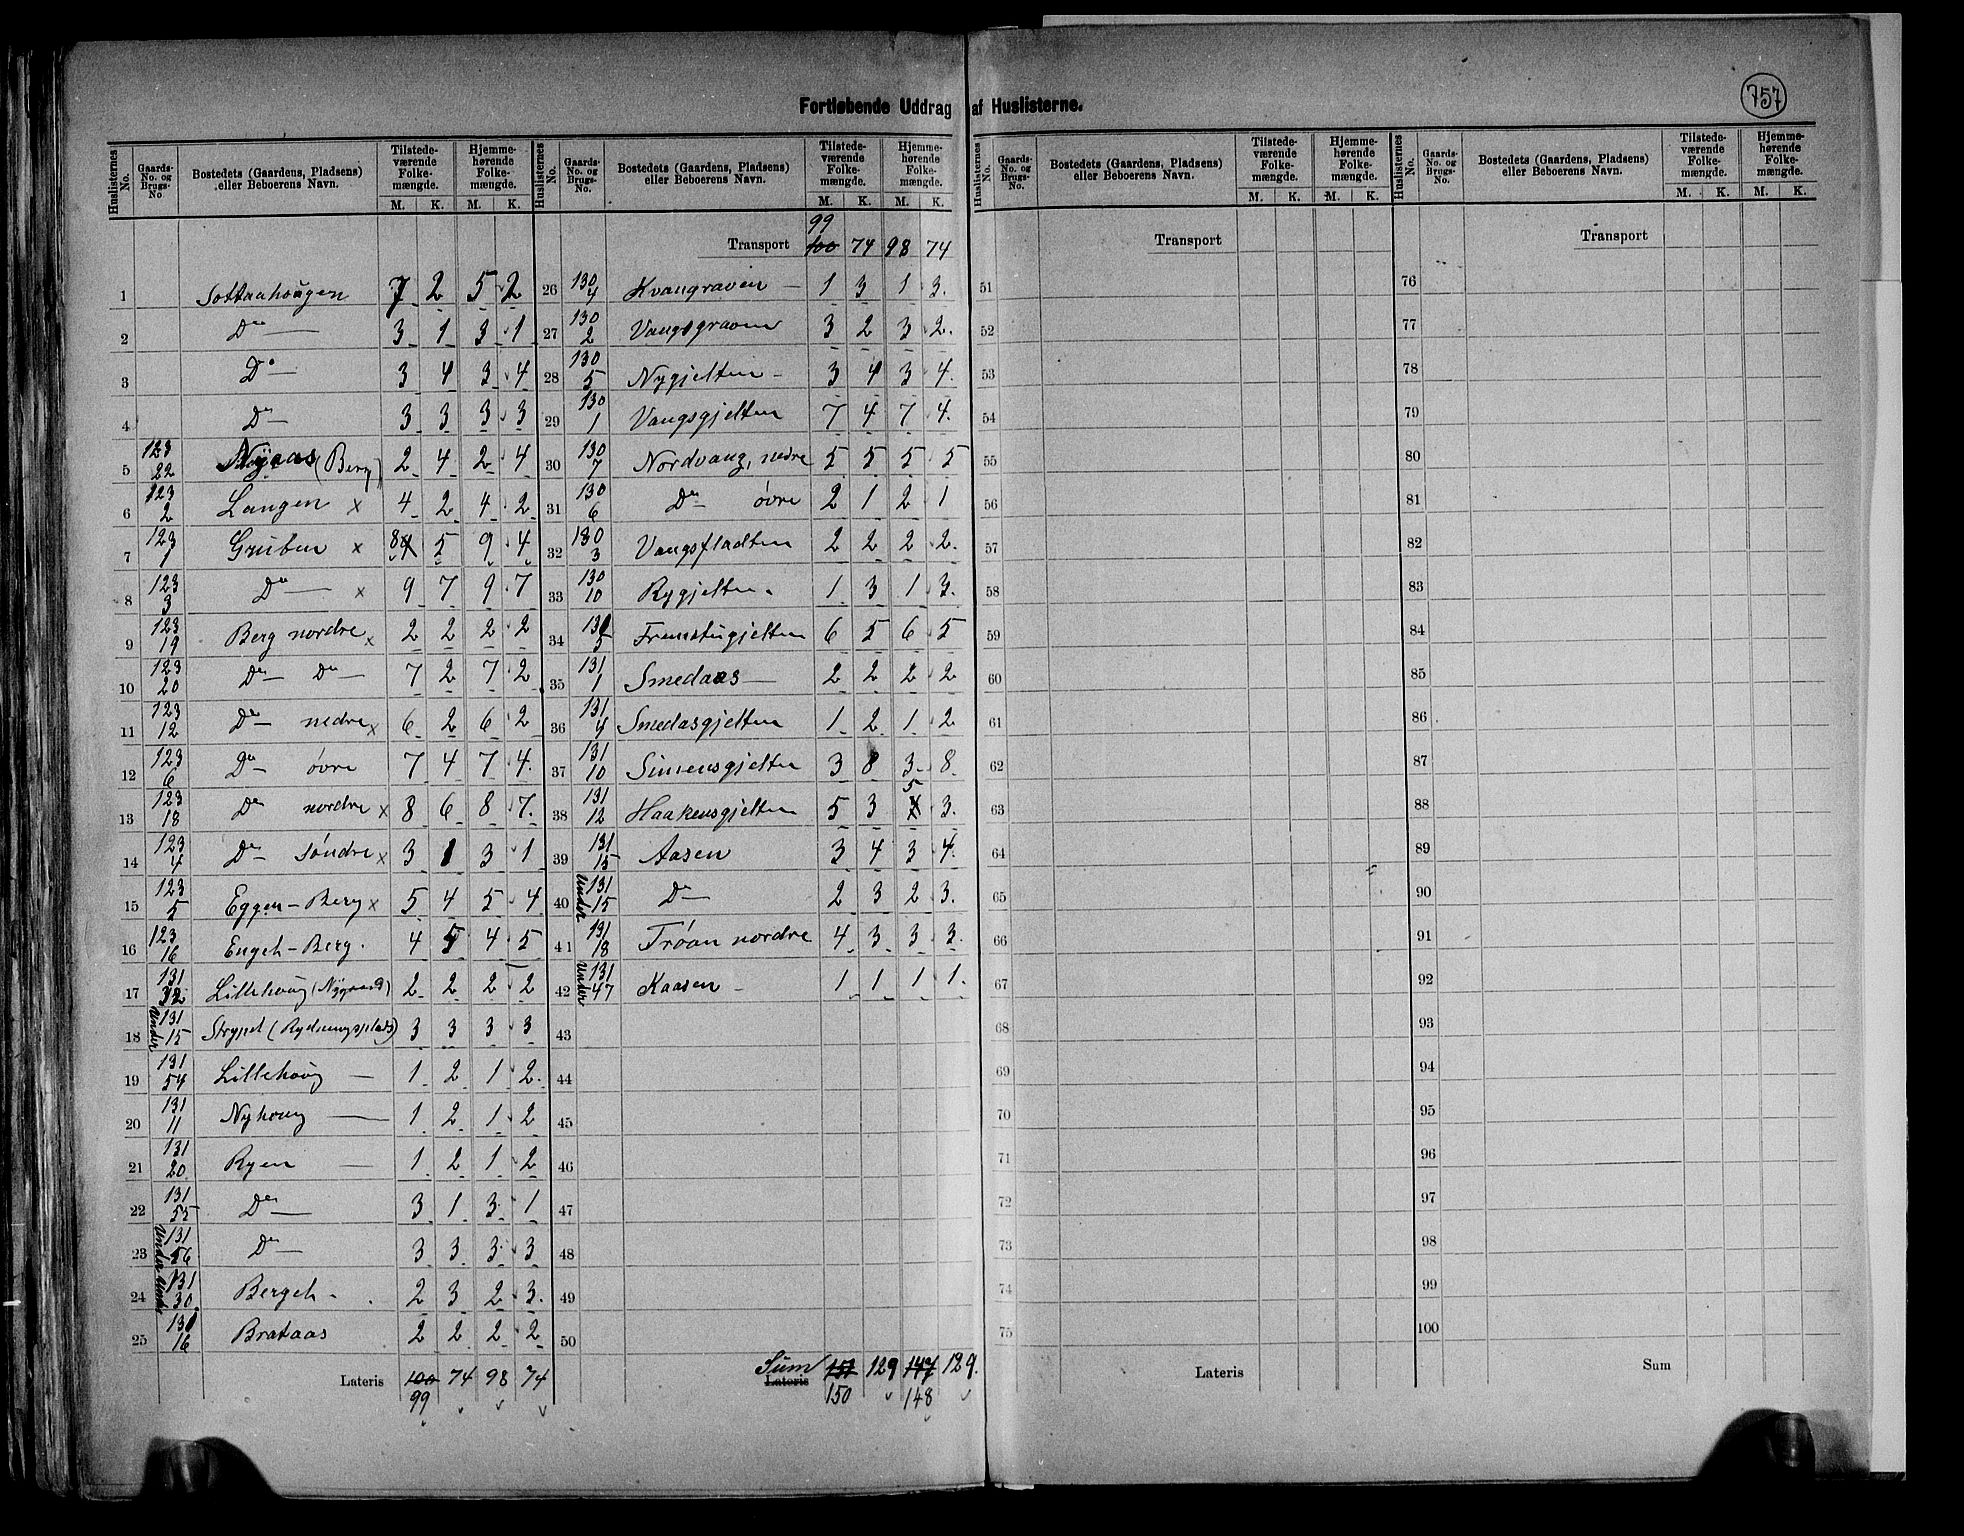 757
Fortløbende Uddrag af Huslisterne.
Huslisternes No. Gaards-No. og Brugs-No Bostedets (Gaardens, Pladsens) eller Beboerens Navn. Tilstede-værende Folke-mængde. M. K. Hjemme-hørende Folke-mængde. M. K.
1 Sottaahougen 7 2 5 2
2 Do 3 1 3 1
3 Do 3 4 3 4
4 Do 3 3 3 3
5 123/22 Nyaas (Berg) 2 4 2 4
6 123/2 Langen x 4 2 4 2
7 123/1 Gruben x 8 5 9 4
8 123/3 Do x 9 7 9 7
9 123/19 Berg nordre x 2 2 2 2
10 123/20 Do Do 7 2 7 2
11 123/12 Do nedre x 6 2 6 2
12 123/6 Do øvre 7 4 7 4
13 123/18 Do nordre x 8 6 8 7
14 123/4 Do søndre x 3 1 3 1
15 123/5 Eggen-Berg x 5 4 5 4
16 123/16 Engeh-Berg. 4 5 4 5
17 131/32 Lillehoug (Nygaard) 2 2 2 2
18 Under 131/15 Strypet (Rydningsplads) 3 3 3 3
19 131/54 Lillehoug 1 2 1 2
20 131/11 Nyhoug 1 2 1 2
21 131/20 Ryen 1 2 1 2
22 131/55 Do 3 1 3 1
23 Under 131/56 Do 3 3 3 3
24 Under 131/30 Bergeh 2 3 2 3
25 131/16 Brataas 2 2 2 2
Lateris 100 74 98 74
99
Huslisternes No. Gaards-No. og Brugs-No. Bostedets (Gaardens, Pladsens) eller Beboerens Navn. Tilstede-værende Folke-mængde. M. K. Hjemme-hørende Folke-mængde. M. K.
99
Transport 100 74 98 74
26 130/4 Kvangraven 1 3 1 3
27 130/2 Vangsgraven 3 2 3 2
28 130/5 Nygjelten 3 4 3 4
29 130/1 Vangsgjelten 7 4 7 4
30 130/7 Nordvang, nedre 5 5 5 5
31 130/6 Do øvre 2 1 2 1
32 130/3 Vangsfladten 2 2 2 2
33 130/10 Rygjelten 1 3 1 3
34 131/5 Fremstugjelten 6 5 6 5
35 131/1 Smedaas 2 2 2 2
36 131/4 Smedasgjelten 1 2 1 2
37 131/10 Simensgjelten 3 8 3 8
38 131/12 Haakensgjelten 5 3 5 3
39 131/15 Aasen 3 4 3 4
40 Under 131/15 Do 2 3 2 3
41 131/18 Trøan nordre 4 3 3 3
42 Under 131/47 Kaasen 1 1 1 1
43
44
45
46
47
48
49
50
Sum Lateris 151 129 147 129
150 148
Huslisternes No. Gaards-No. og Brugs-No. Bostedets (Gaardens, Pladsens) eller Beboerens Navn. Tilstede-værende Folke-mængde. M. K. Hjemme-hørende Folke-mængde. M. K.
Transport
51
52
53
54
55
56
57
58
59
60
61
62
63
64
65
66
67
68
69
70
71
72
73
74
75
Lateris
Huslisternes No. Gaards-No. og Brugs-No. Bostedets (Gaardens, Pladsens) eller Beboerens Navn. Tilstede-værende Folke-mængde. M. K. Hjemme-hørende Folke-mængde. M. K.
Transport
76
77
78
79
80
81
82
83
84
85
86
87
88
89
90
91
92
93
94
95
96
97
98
99
100
Sum